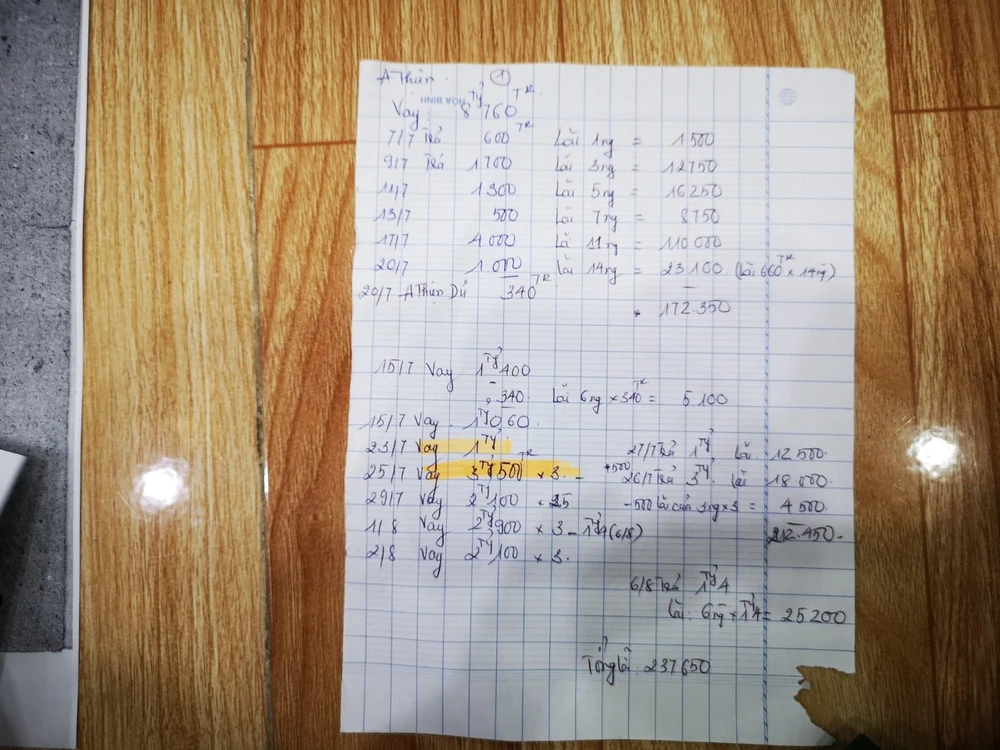 A Thiên. 1
HÒA BÌNH
Vay: 8 Tỷ 760 TR
7/7 Trả 600 TR Lãi 1ng = 1500
9/7 Trả 1.700 Lãi 3ng = 12750
11/7 1300 Lãi 5ng = 16250
13/7 500 Lãi 7ng = 8750
17/7 4.000 Lã 11ng = 110.000
20/7 1.000 Lãi 14ng = 23100 (Lãi 660 TR x 14ng)
20/7 A Thiên Dư 340 TR
172.350
15/7 Vay 1 Tỷ 400
- 340 Lãi 6ng x 340 TR = 5.100
15/7 Vay. 1 Tỷ 060.
23/7 Vay 1 Tỷ. 27/7 Trả 1 Tỷ. Lãi. 12.500.
25/7 Vay 3 Tỷ 500 TR x 3. - +500 26/7 Trả 3 Tỷ. Lãi 18.000.
29/7 Vay 2 Tỷ 100 x 25 -500 lãi còn 3ng x 3 = 4500.
1/8 Vay 2 Tỷ 900 x 3 - 1 Tỷ 4 (6/8) 212.450.
2/8 Vay 2 Tỷ 100 x 3.
6/8 Trả 1 Tỷ 4
Lãi: 6ng x 1 Tỷ 4 = 25200
Tổng lãi: 237650